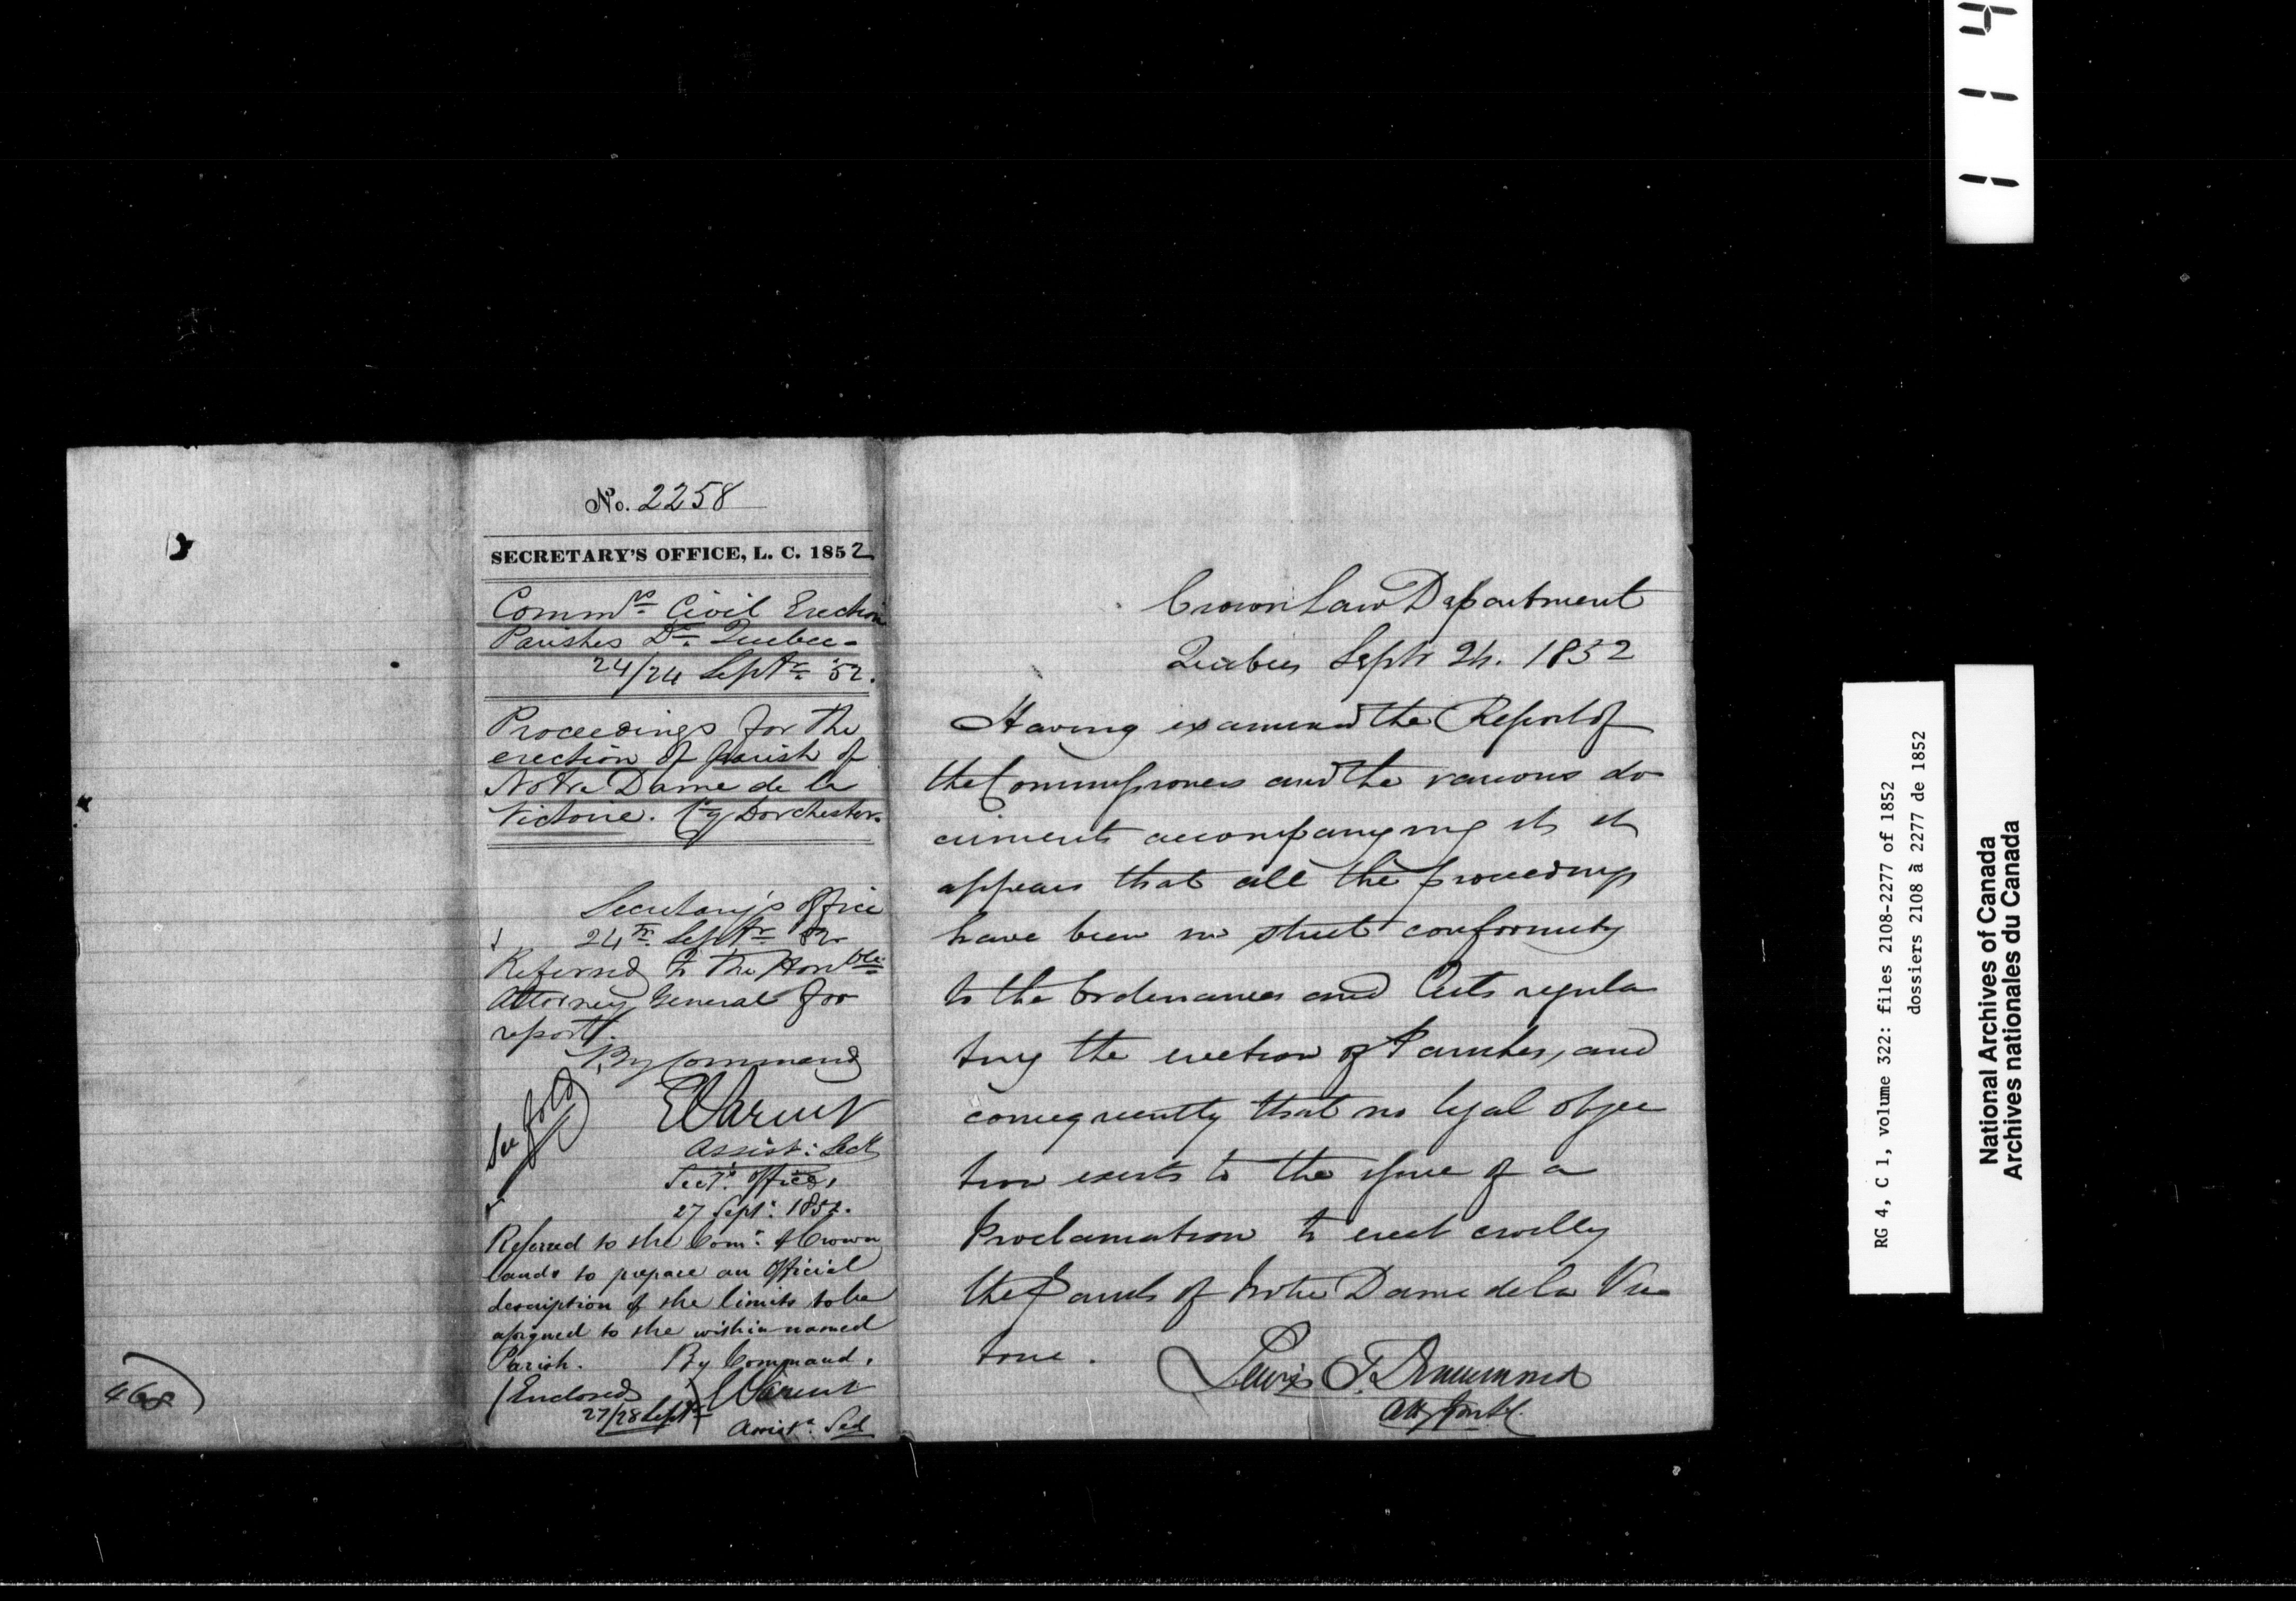 No. 2258
SECRETARY'S OFFICE, L. C. 1852
Commrs Civil Erection
Parishes Dt. Quebec-
24/24 Septr 52.
Proceedings for the
erection of parish of
Notre Dame de la
Victoire. Cy Dorchester.
Secretary's Office
24th Septr 52
Referred to the Honble
Attorney General for
report.
By Command
See fold
E Parent
Assist: Secy
Secy. Office,
27 Sept: 1852.
Referred to the Comr. of Crown
lands to prepare an Official
description of the limits to be
assigned to the within named
Parish. By Command,
(Enclosed E Parent
27/28 Septr)
Assist. Sec
468
Crown Law Department
Quebec Septr 24. 1852
Having examined the Report of
the Commissioners and the various do
cuments accompanying it, it
appears that all the proceedings
have been in strict conformity
to the Ordinances and Acts regula
ting the erection of Parishes, and
consequently that no legal objec
tion exists to the issue of a
Proclamation to erect civilly
the Parish of Notre Dame de la Vic
toire.
Lewis T. Drummond
Atty Genl.
1 1 4
RG 4, C 1, volume 322: files 2108-2277 of 1852
dossiers 2108 à 2277 de 1852
National Archives of Canada
Archives nationales du Canada